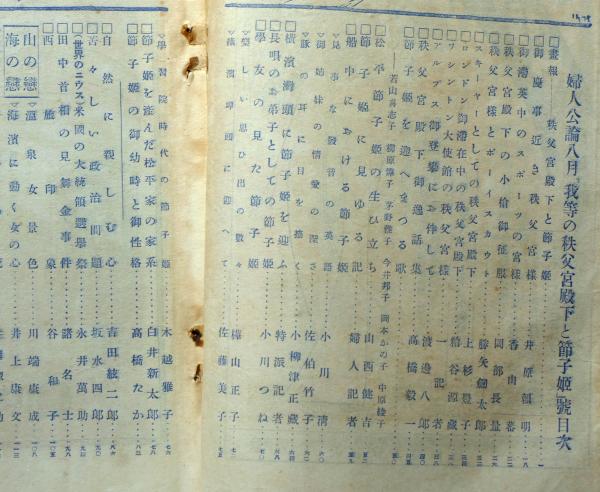 婦人公論八月『我等の秩父宮殿下と節子姫』號目次
□畫報――秩父宮殿下と節子姫
□御慶事近き秩父宮様 井原頣明 一八
□御滯英中のスポーツの宮様 香山蕃
□秩父宮殿下の小槍御征服 岡部長量
□秩父宮様とボーイスカウト
□スキーヤーとしての秩父宮殿下 勝矢劍太郎
□ロンドン御滯在中の秩父宮殿下 上杉豊子
□ワシントン大使館の秩父宮様 粕谷源藏
□アルプス御登攀にお伴して 一記者
□秩父宮殿下御逸話集 渡邊八郎
□節子姫を迎へまつる歌 高橋毅一
若山喜志子 柳原燁子 茅野雅子 今井邦子 岡本かの子 中原綾子
□松平節子姫の生ひ立ち 山西健吉
□節子姫に見ゆる記 婦人記者
□船中に於ける節子姫
▽見事な發音の英語 小川清 六〇
▽御姉妹の情愛の深さ 佐伯竹子
▽豚の耳に目を描く 小柳津正藏
□横濱灣頭に節子姫を迎ふ 特派記者
□長唄のお弟子としての節子姫 小川つね
□學友の見た節子姫
▽樂しい思ひ出の數々 樺山正子
▽横濱埠頭に迎へて 佐藤美子 七五
▽學習院時代の節子姫 木越雅子 七六
□節子姫を產んだ松平家の家系 白井新太郎
□節子姫の御幼時と御性格 高橋たか
□自然に親しむ心 吉田絃二郎
□苦々しい政治問題 坂水四郎
□(世界のニウス)米國の大統領選擧祭 永井萬助
□田中首相の見舞金事件 諸名士 九八
□西伯利亞旅の印象 谷和子
山の戀 ▽溫泉女景色 川端康成 一〇八
海の戀 ▽海濱に動く女の心 井上康文 一一三